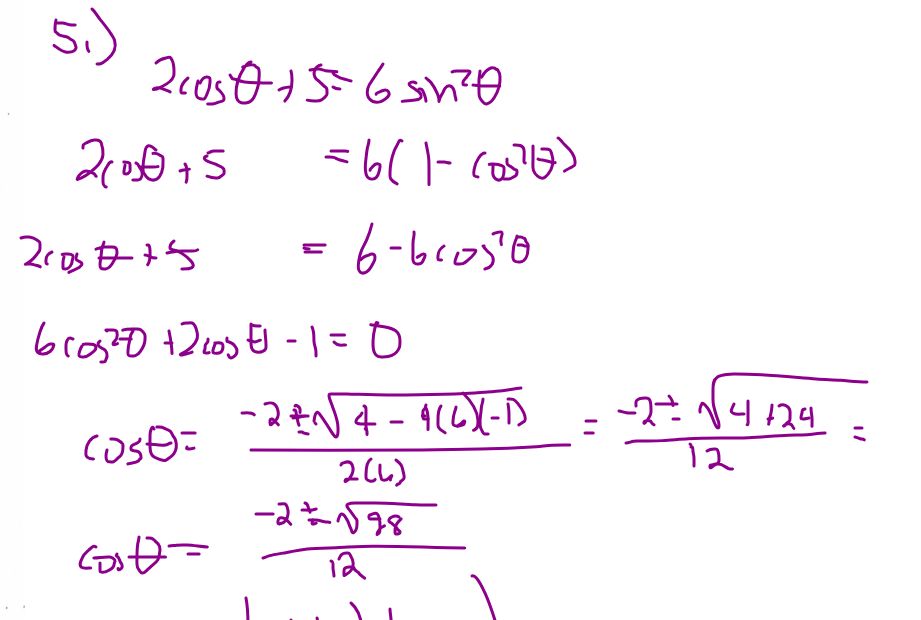 5.)
2cosθ + 5 = 6 sin²θ
2cosθ + 5 = 6(1 - cos²θ)
2cosθ + 5 = 6 - 6cos²θ
6cos²θ + 2cosθ - 1 = 0
cosθ = (-2 ± √(4 - 4(6)(-1))) / 2(6) = (-2 ± √(4 + 24)) / 12 =
cosθ = (-2 ± √28) / 12